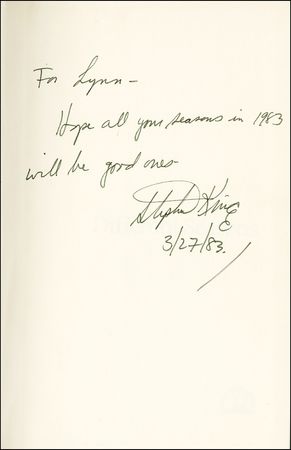 For Lynn -
Hope all your seasons in 1983
will be good ones -
Stephen King
3/27/83.